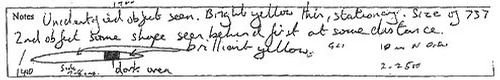 Notes Unidentified object seen. Bright yellow thin, stationary. Size of 737
2nd object same shape seen behind first at some distance.
brilliant yellow.
1400 dark area